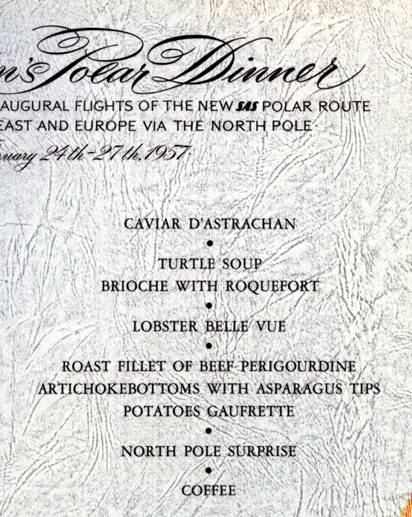 n's Polar Dinner
AUGURAL FLIGHTS OF THE NEW SAS POLAR ROUTE
EAST AND EUROPE VIA THE NORTH POLE·
ruary 24th-27th, 1957·
CAVIAR D'ASTRACHAN
•
TURTLE SOUP
BRIOCHE WITH ROQUEFORT
•
LOBSTER BELLE VUE
•
ROAST FILLET OF BEEF PERIGOURDINE
ARTICHOKEBOTTOMS WITH ASPARAGUS TIPS
POTATOES GAUFRETTE
•
NORTH POLE SURPRISE
•
COFFEE